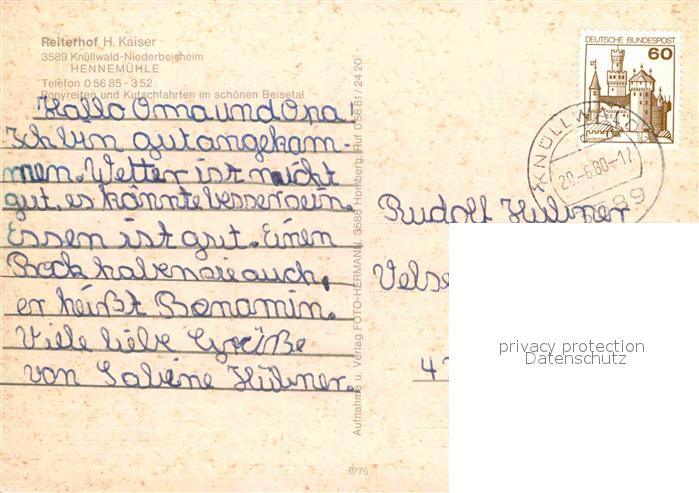 Reiterhof H. Kaiser
3589 Knüllwald-Niederbeisheim
HENNEMÜHLE
Telefon 0 56 85 - 3 52
Ponyreiten und Kutschfahrten im schönen Beisetal
Hallo Oma und Opa!
Ich bin gut angekom-
men. Wetter ist nicht
gut, es könnte besser sein.
Essen ist gut. Einen
Bock haben sie auch,
er heißt Bonamin.
Viele liebe Grüße
von Sabine Hübner.
Aufnahme u. Verlag FOTO-HERMANN, 3588 Homberg, Ruf 0 56 81 / 24 20
6/75
DEUTSCHE BUNDESPOST
60
KNÜLLWALD
-6.80-12
3589
Rudolf Hübner
Velse
4
privacy protection
Datenschutz